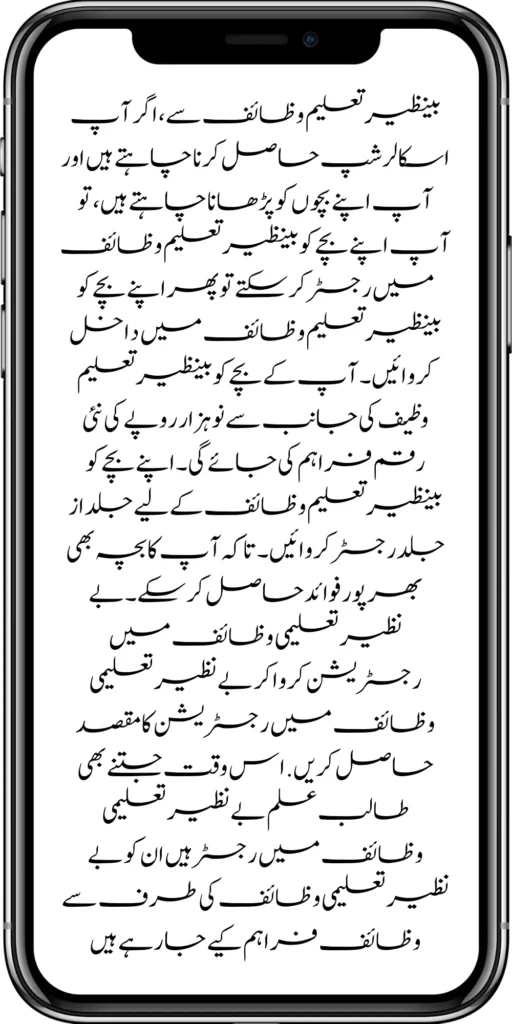 بینظیر تعلیم وظائف سے، اگر آپ
اسکالرشپ حاصل کرنا چاہتے ہیں اور
آپ اپنے بچوں کو پڑھانا چاہتے ہیں، تو
آپ اپنے بچے کو بینظیر تعلیم وظائف
میں رجسٹر کر سکتے تو پھر اپنے بچے کو
بینظیر تعلیم وظائف میں داخل
کروائیں۔ آپ کے بچے کو بینظیر تعلیم
وظیف کی جانب سے نو ہزار روپے کی نئی
رقم فراہم کی جائے گی۔ اپنے بچے کو
بینظیر تعلیم وظائف کے لیے جلد از
جلد رجسٹر کروائیں۔ تاکہ آپ کا بچہ بھی
بھرپور فوائد حاصل کر سکے۔ بے
نظیر تعلیمی وظائف میں
رجسٹریشن کروا کر بے نظیر تعلیمی
وظائف میں رجسٹریشن کا مقصد
حاصل کریں. اس وقت جتنے بھی
طالب علم بے نظیر تعلیمی
وظائف میں رجسٹر ہیں ان کو بے
نظیر تعلیمی وظائف کی طرف سے
وظائف فراہم کیے جا رہے ہیں